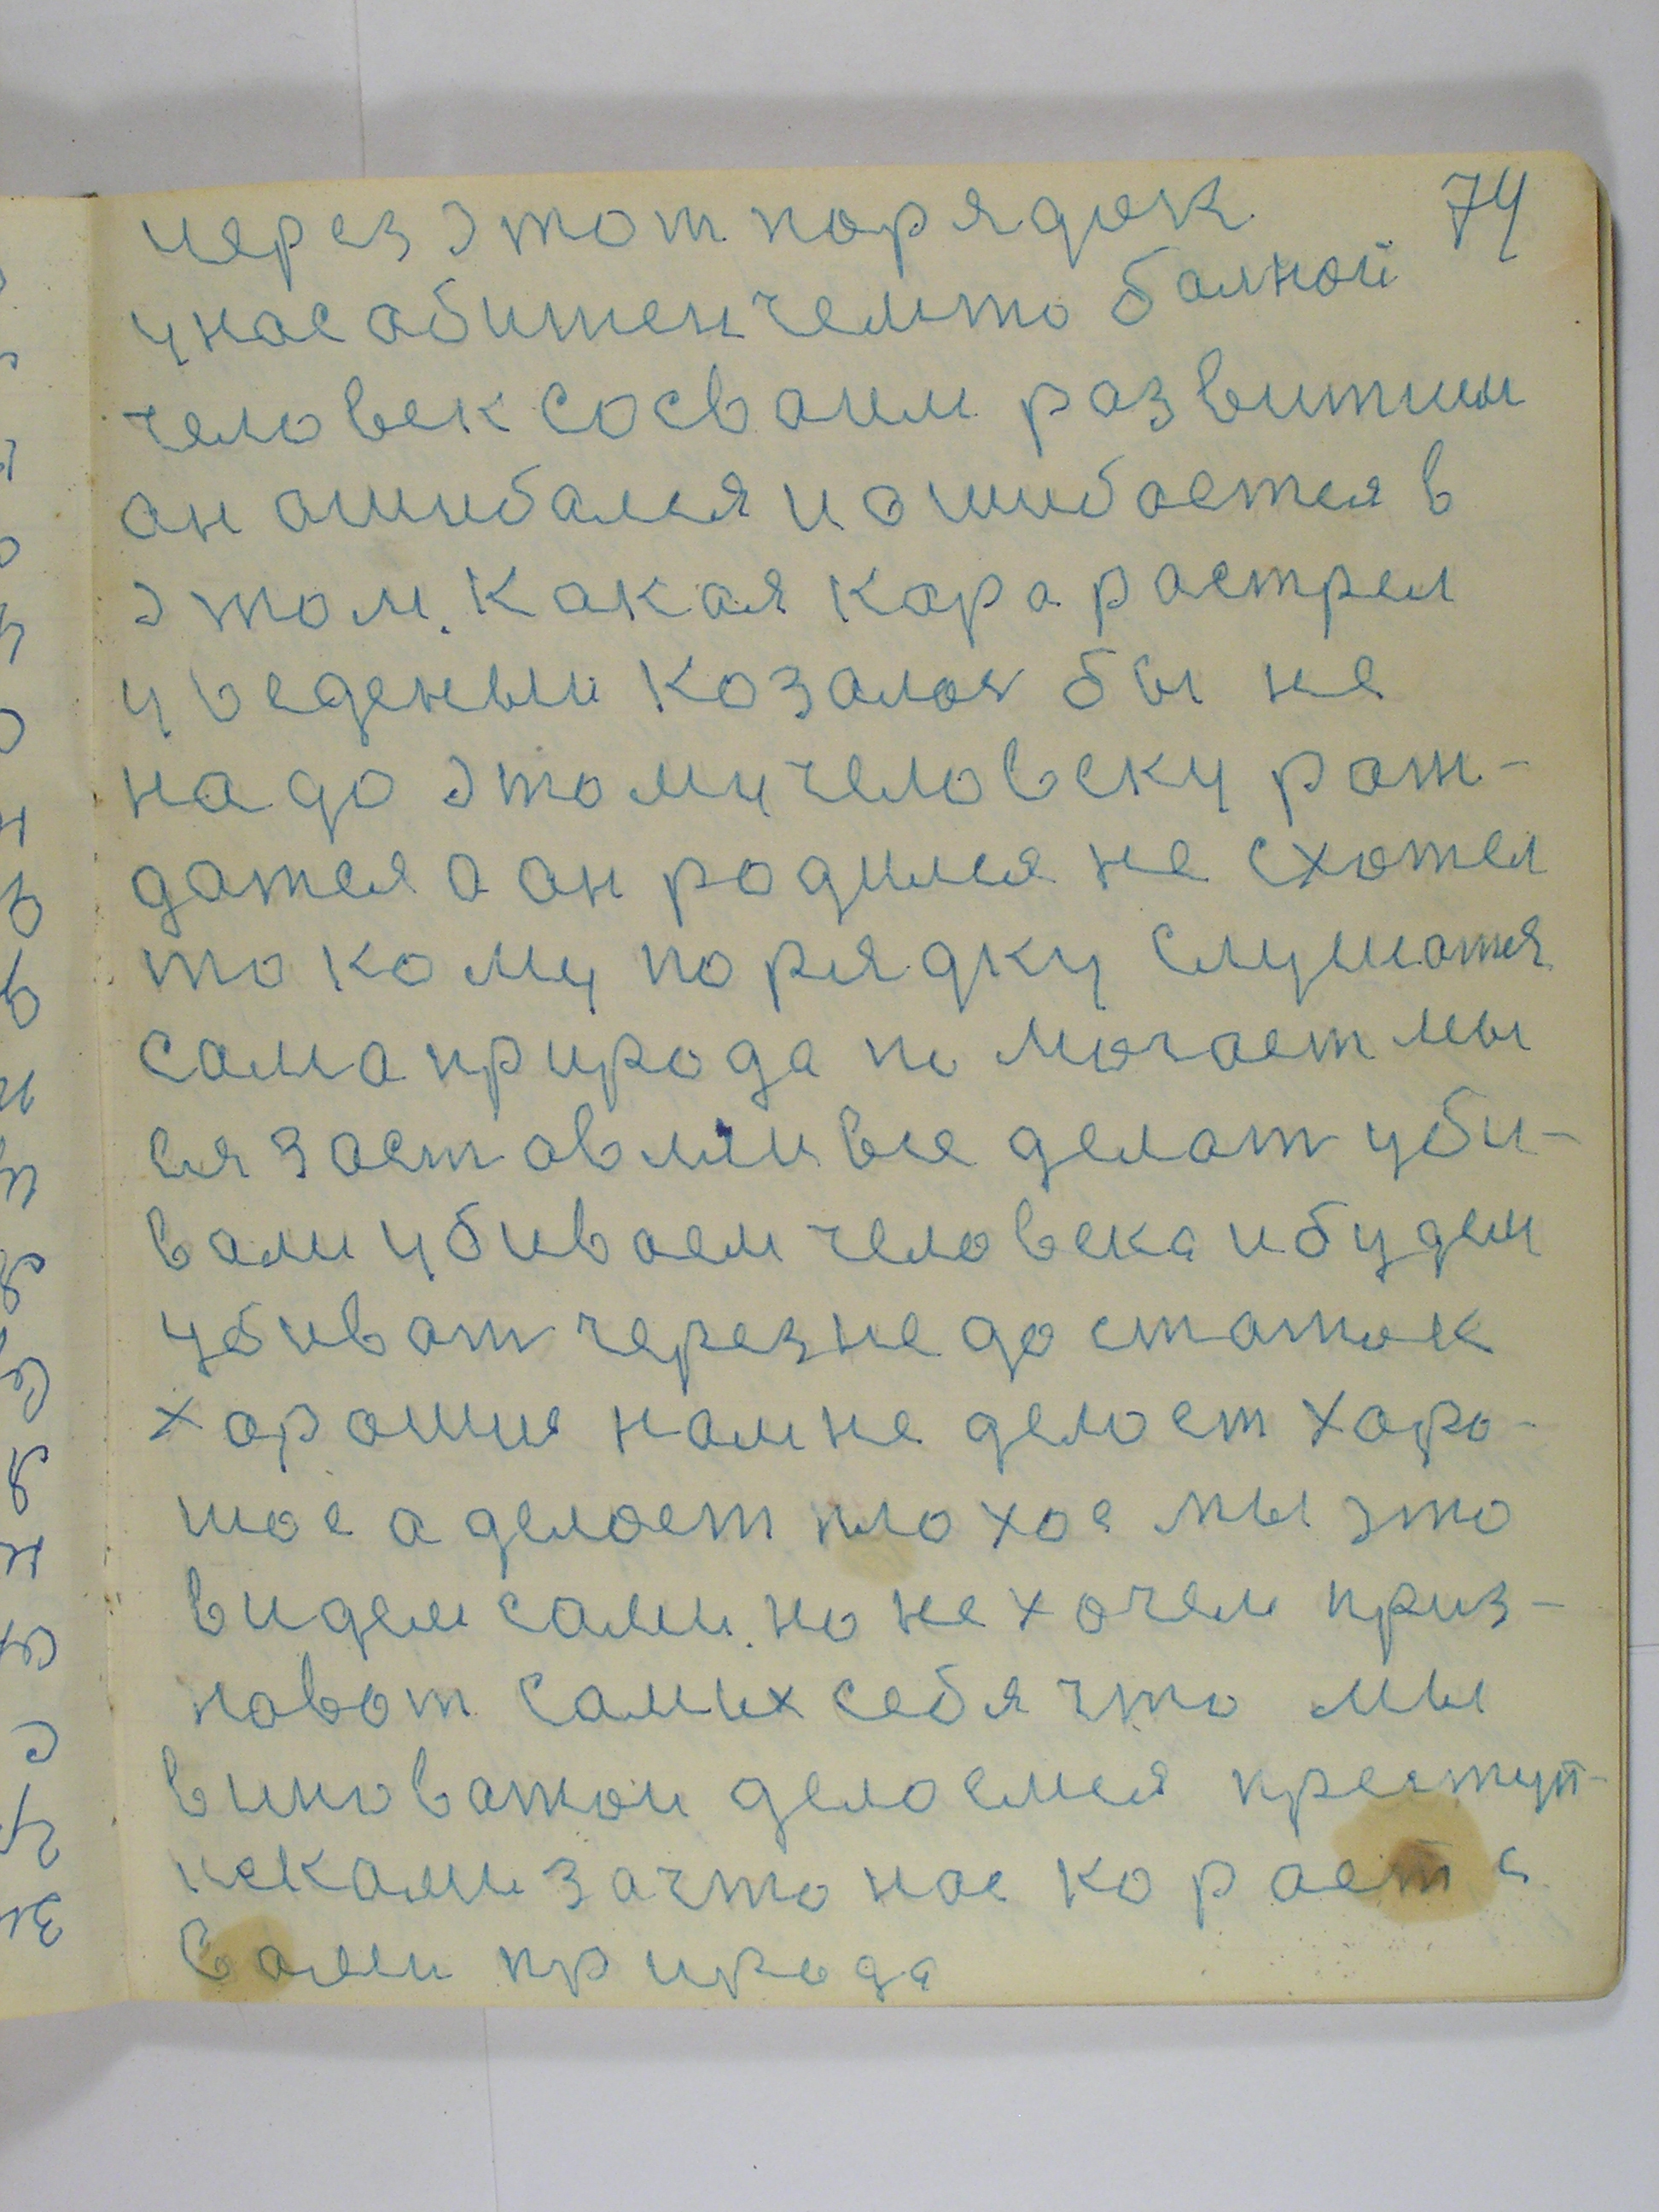 74
через этот порядок
унас абитен чемто балной
человек сосваим развитим
ан ашибался и ошибается в
этом. Какая кара растрел
уведеным козалос бы не
надо этому человеку рат-
датся а ан родился не схотел
токому порядку слушатся
сама природа помогает мы
ея заставлии все делат уби-
вали убиваем человека и будем
убиват через недостаток
харошия нам не делает харо-
шое а делает плохое мы это
видем сами. но не хочем приз-
нават самих себя что мы
виноватои делаемся преступ-
никами зачто нас карает с
вами природа